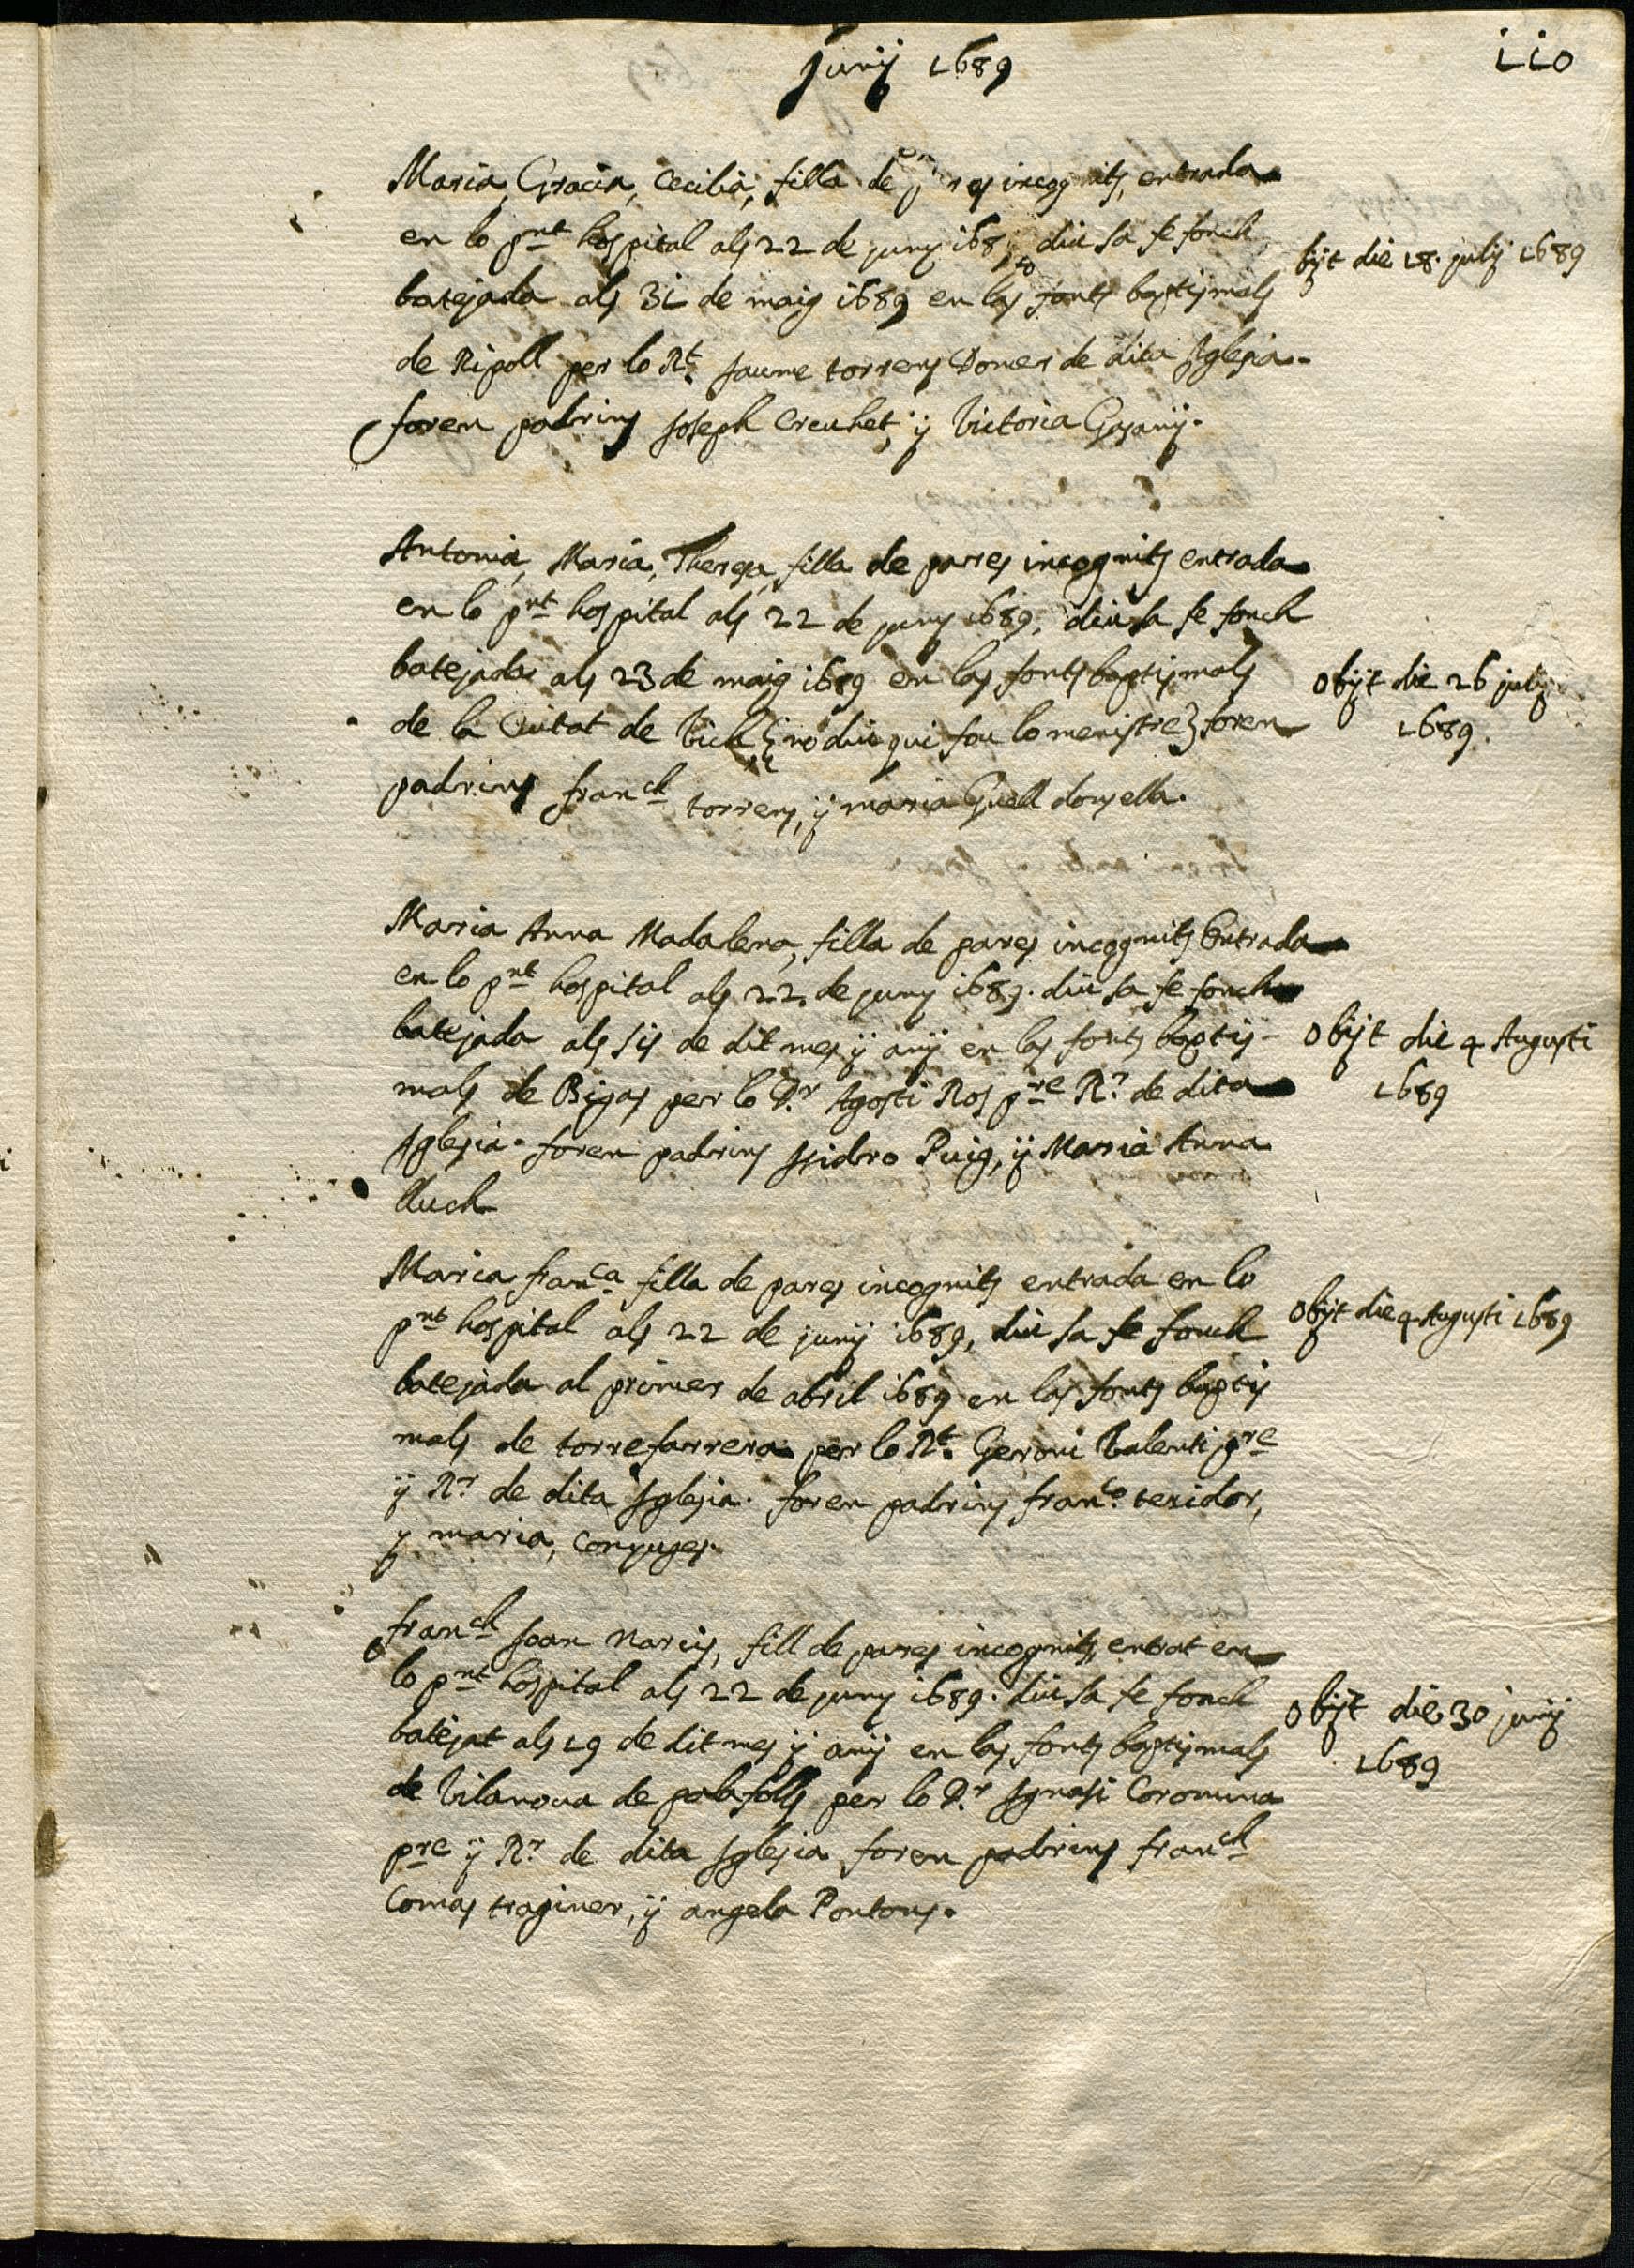 Junÿ 1689
110
Maria, Gracia, Cecilia, filla de pares incognits, entrada
en lo pnt hospital als 22 de juny 1689 diu sa fe fonch
obÿt die 18. julÿ 1689
batejada als 31 de maig 1689 en las fonts baptismals
de Ripoll per lo Rt. Jaume torrens Domer de dita Iglesia.
foren padrins Joseph Creuhet, ÿ Victoria
Antonia, Maria, Theresa, filla de pares incognits entrada
en lo pnt hospital als 22 de juny 1689, diu sa fe fonch
batejada als 23 de maig 1689 en las fonts baptismals
obÿt die 26 julÿ
de la Ciutat de Vich (no diu qui fou lo menistre) foren
1689.
padrins franch torrens, ÿ maria Guell donsella.
Maria Anna Madalena, filla de pares incognits Entrada
en lo pnt hospital als 22. de juny 1689. diu sa fe fonch
batejada als sis de dit mes ÿ anÿ en las fonts baptis-
obÿt die 4 Augusti
mals de Bigas per lo Dr. Agosti Ros pre Rr. de dita
1689
Iglesia. foren padrins Isidro Puig, ÿ Maria Anna
lluch
Maria franca filla de pares incognits entrada en lo
pnt hospital als 22 de junÿ 1689, diu sa fe fonch
obÿt die 4 Augusti 1689
batejada al primer de abril 1689 en las fonts baptis
mals de torrefarrera per lo Rt. Geroni Valenti pre
ÿ Rr. de dita Iglesia. foren padrins franco. texidor,
y maria, conjuges.
franch Joan Narcis, fill de pares incognits, entrat en
lo pnt hospital als 22 de juny 1689. diu sa fe fonch
obÿt die 30 junÿ
batejat als 19 de dit mes ÿ anÿ en las fonts baptismals
1689
de Vilanova de palafolls per lo Dr. Ignasi Coromina
pre ÿ Rr. de dita Iglesia foren padrins franch
Comas traginer, ÿ angela Pontons.